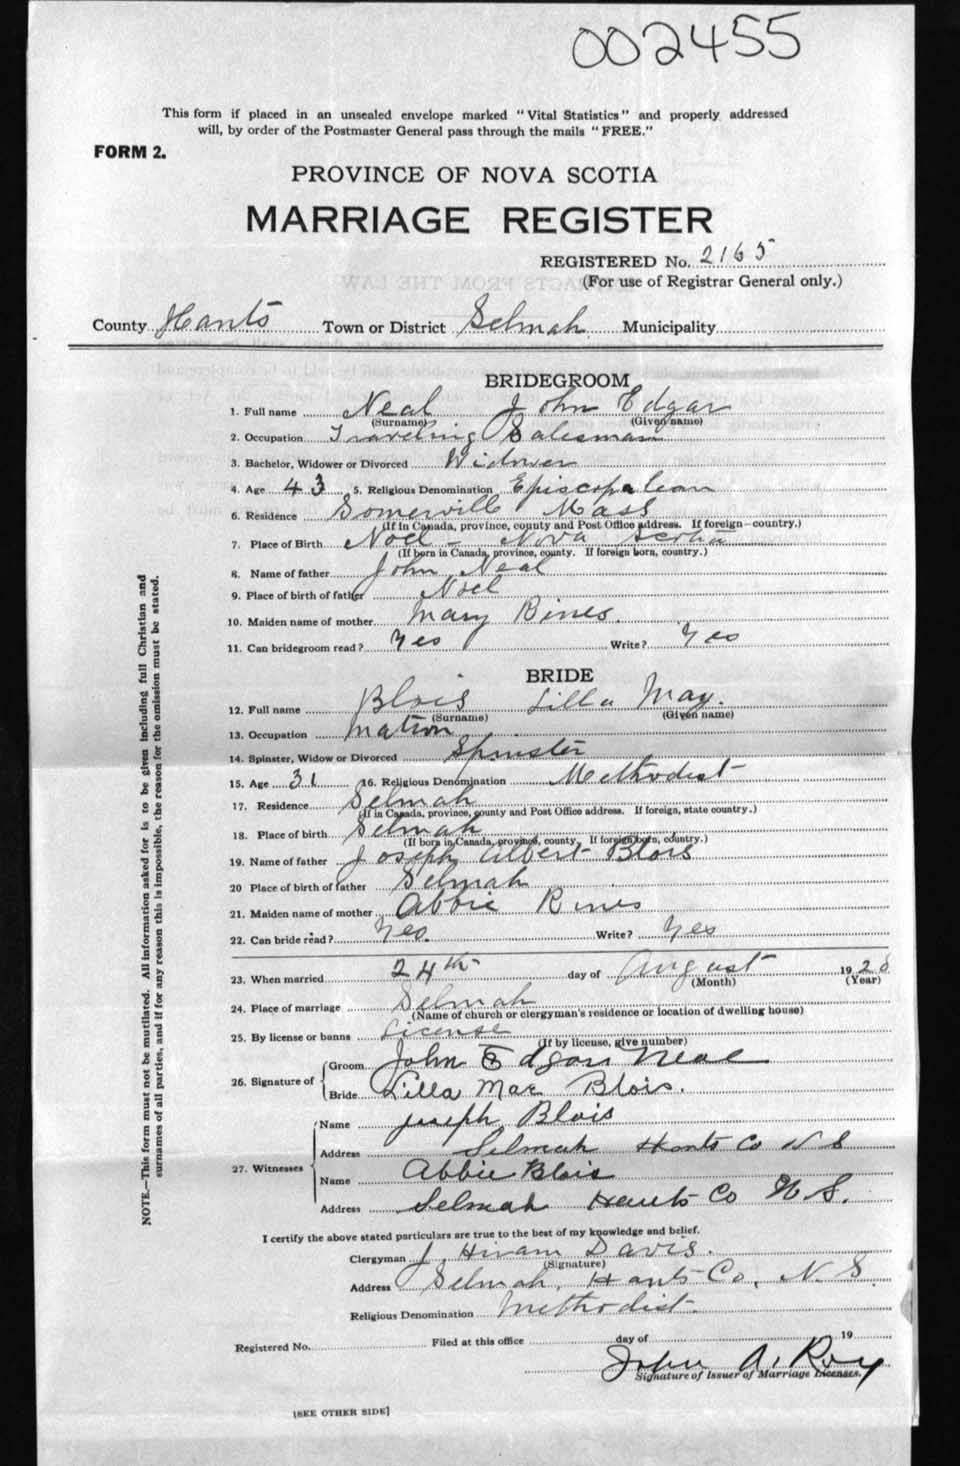 002455
This form if placed in an unsealed envelope marked "Vital Statistics" and properly addressed
will, by order of the Postmaster General pass through the mails "FREE."
FORM 2.
PROVINCE OF NOVA SCOTIA
MARRIAGE REGISTER
REGISTERED No. 2165
(For use of Registrar General only.)
County Hants Town or District Selmah Municipality
BRIDEGROOM
1. Full name Neal John Edgar
(Surname) (Given name)
2. Occupation Traveling Salesman
3. Bachelor, Widower or Divorced Widower
4. Age 43 5. Religious Denomination Episcopalean
6. Residence Somerville Mass
(If in Canada, province, county and Post Office address. If foreign—country.)
7. Place of Birth Noel - Nova Scotia
(If born in Canada, province, county. If foreign born, country.)
8. Name of father John Neal
9. Place of birth of father Noel
10. Maiden name of mother Mary Rines.
11. Can bridegroom read? Yes Write? Yes
BRIDE
12. Full name Blois Lilla May.
(Surname) (Given name)
13. Occupation Matron
14. Spinster, Widow or Divorced Spinster
15. Age 31 16. Religious Denomination Methodist
17. Residence Selmah
(If in Canada, province, county and Post Office address. If foreign, state country.)
18. Place of birth Selmah
(If born in Canada, province, county. If foreign born, country.)
19. Name of father Joseph Albert Blois
20 Place of birth of father Selmah
21. Maiden name of mother Abbie Rines
22. Can bride read? Yes. Write? Yes
23. When married 24th day of August 1920
(Month) (Year)
24. Place of marriage Selmah
(Name of church or clergyman's residence or location of dwelling house)
25. By license or banns License
(If by license, give number)
26. Signature of Groom John Edgar Neal
Bride Lilla Mae Blois.
27. Witnesses Name Joseph Blois
Address Selmah Hants Co N S
Name Abbie Blois
Address Selmah Hants Co N.S.
I certify the above stated particulars are true to the best of my knowledge and belief.
Clergyman J. Hiram Davis.
(Signature)
Address Selmah, Hants Co., N.S.
Religious Denomination Methodist.
Registered No. Filed at this office day of 19
John A. Roy
Signature of Issuer of Marriage Licenses.
[SEE OTHER SIDE]
NOTE.—This form must not be mutilated. All information asked for is to be given including full Christian and
surnames of all parties, and if for any reason this is impossible, the reason for the omission must be stated.